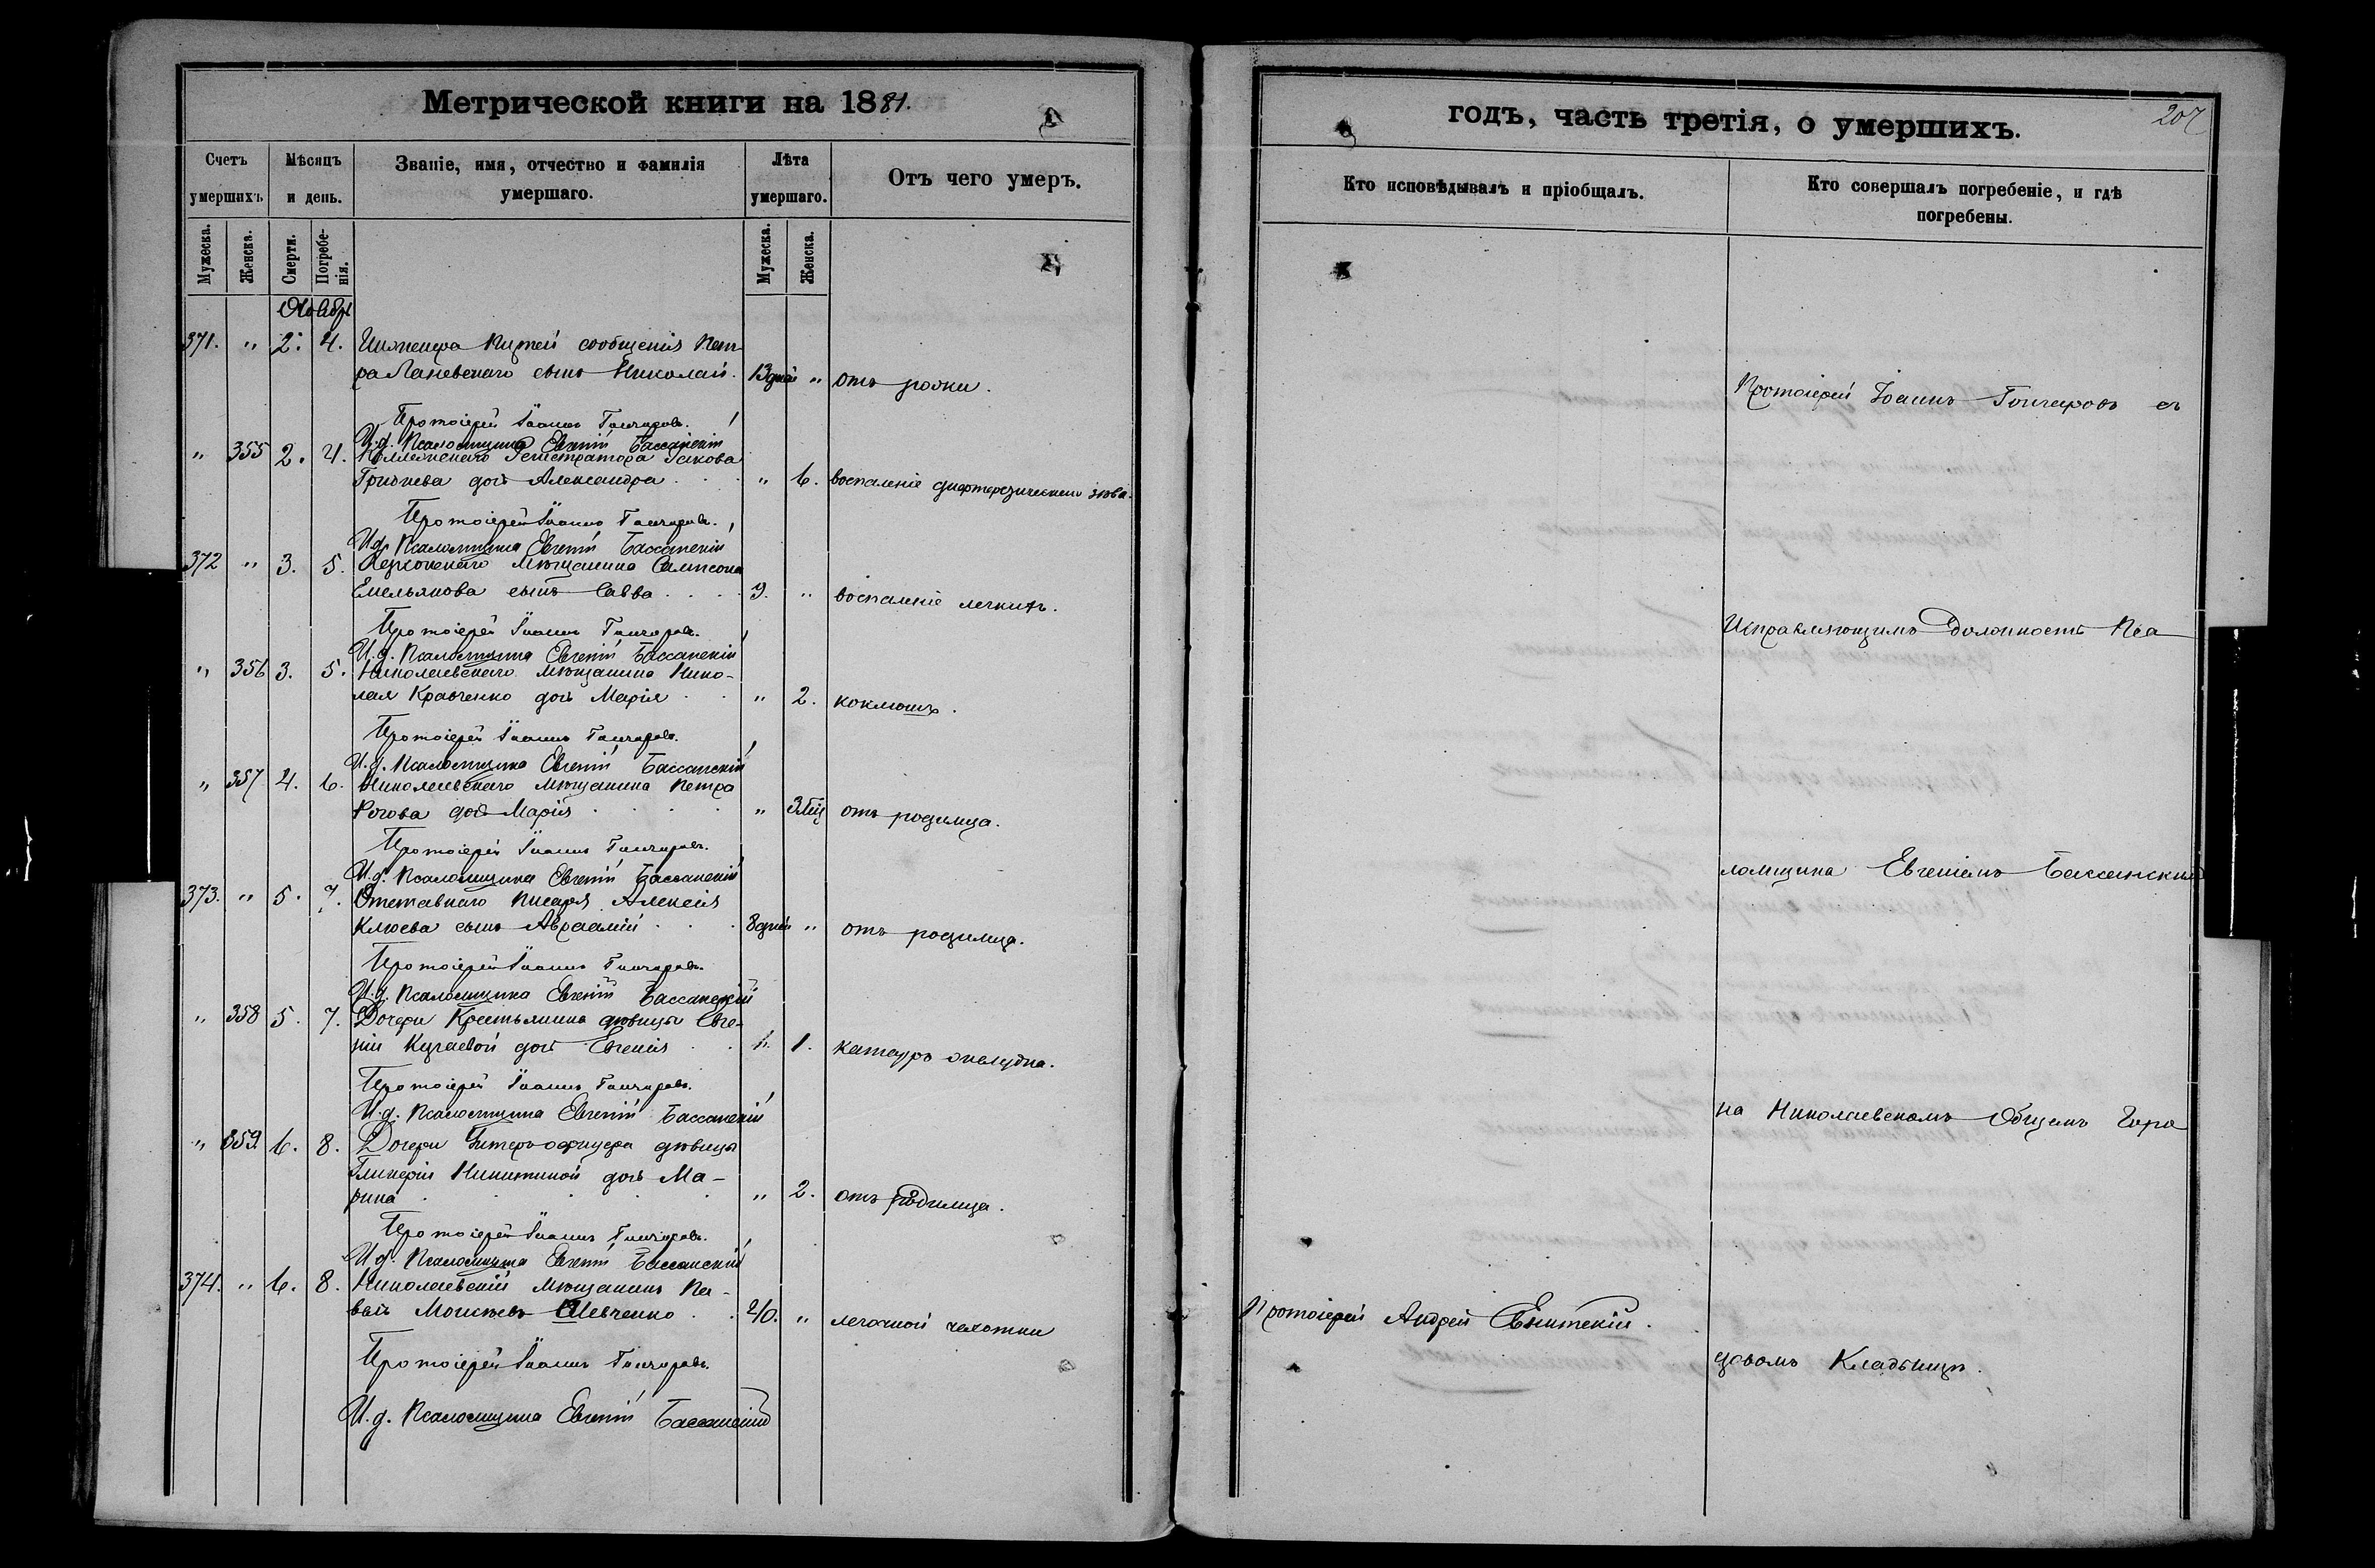 Метрической книги на 1881.
Счетъ умершихъ
Мѣсяцъ и день.
Званіе, имя, отчество и фамилія умершаго.
Лѣта умершаго.
Отъ чего умеръ.
Мужеска.
Женска.
Смерти.
Погребенія.
Мужеска.
Женска.
Ноябрь
371. " 2. 4. Инженера Путей сообщенія Пет-
ра Ланевскаго сынъ Николай. 13 дней " отъ рожи.
Протоіерей Іоаннъ Гончаровъ.
И.д. Псаломщика Евгеній Бассанскій
" 355 2. 4. Коллежскаго Регистратора Іакова
Гриднева дочь Александра . . . " 6. воспаленіе дифтерическое зѣва.
Протоіерей Іоаннъ Гончаровъ.
И.д. Псаломщика Евгеній Бассанскій
372 " 3. 5. Херсонскаго Мѣщанина Сампсона
Емельянова сынъ Савва . . . . 9. " воспаленіе легкихъ.
Протоіерей Іоаннъ Гончаровъ.
И.д. Псаломщика Евгеній Бассанскій
" 356 3. 5. Николаевскаго Мѣщанина Нико-
лая Кравченко дочь Марія . . " 2. коклюшъ.
Протоіерей Іоаннъ Гончаровъ.
И.д. Псаломщика Евгеній Бассанскій
" 357 4. 6. Николаевскаго Мѣщанина Петра
Рогова дочь Марія . . . . " отъ родимца.
Протоіерей Іоаннъ Гончаровъ.
И.д. Псаломщика Евгеній Бассанскій
373. " 5. 7. Отставнаго Писаря Алексія
Клюева сынъ Авраамій . . . 8 дней " отъ родимца.
Протоіерей Іоаннъ Гончаровъ.
И.д. Псаломщика Евгеній Бассанскій
" 358 5. 7. Дочери Крестьянина дѣвицы Евге-
ніи дочь Евгенія . . " 1. катарръ желудка.
Протоіерей Іоаннъ Гончаровъ.
И.д. Псаломщика Евгеній Бассанскій
" 359. 6. 8. Дочери Унтеръ-офицера дѣвицы
Гликеріи Никитиной дочь Ма-
рина . . . . . " 2. отъ родимца.
Протоіерей Іоаннъ Гончаровъ.
И.д. Псаломщика Евгеній Бассанскій
374. " 6. 8. Николаевскій Мѣщанинъ Па-
велъ Моисѣевъ Шевченко . . 40. " легочной чахотки
Протоіерей Іоаннъ Гончаровъ.
И.д. Псаломщика Евгеній Бассанскій
годъ, часть третія, о умершихъ.
207
Кто исповѣдывалъ и пріобщалъ.
Кто совершалъ погребеніе, и гдѣ погребены.
Протоіерей Іоаннъ Гончаровъ съ
Исправляющимъ должность Пса
ломщика Евгеніемъ Бассанскимъ
на Николаевскомъ Общемъ Горо
Протоіерей Андрей
дскомъ Кладбищѣ.